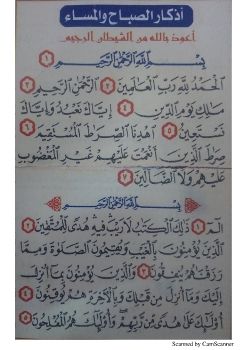 أذكار الصباح والمساء
أعوذ بالله من الشيطان الرجيم
بِسْمِ اللَّهِ الرَّحْمَٰنِ الرَّحِيمِ ١
الْحَمْدُ لِلَّهِ رَبِّ الْعَالَمِينَ ٢ الرَّحْمَٰنِ الرَّحِيمِ ٣
مَالِكِ يَوْمِ الدِّينِ ٤ إِيَّاكَ نَعْبُدُ وَإِيَّاكَ
نَسْتَعِينُ ٥ اهْدِنَا الصِّرَاطَ الْمُسْتَقِيمَ ٦
صِرَاطَ الَّذِينَ أَنْعَمْتَ عَلَيْهِمْ غَيْرِ الْمَغْضُوبِ
عَلَيْهِمْ وَلَا الضَّالِّينَ ٧
بِسْمِ اللَّهِ الرَّحْمَٰنِ الرَّحِيمِ
الم ١ ذَٰلِكَ الْكِتَابُ لَا رَيْبَ فِيهِ هُدًى لِلْمُتَّقِينَ ٢
الَّذِينَ يُؤْمِنُونَ بِالْغَيْبِ وَيُقِيمُونَ الصَّلَاةَ وَمِمَّا
رَزَقْنَاهُمْ يُنْفِقُونَ ٣ وَالَّذِينَ يُؤْمِنُونَ بِمَا أُنْزِلَ
إِلَيْكَ وَمَا أُنْزِلَ مِنْ قَبْلِكَ وَبِالْآخِرَةِ هُمْ يُوقِنُونَ ٤
أُولَٰئِكَ عَلَىٰ هُدًى مِنْ رَبِّهِمْ وَأُولَٰئِكَ هُمُ الْمُفْلِحُونَ ٥
Scanned by CamScanner